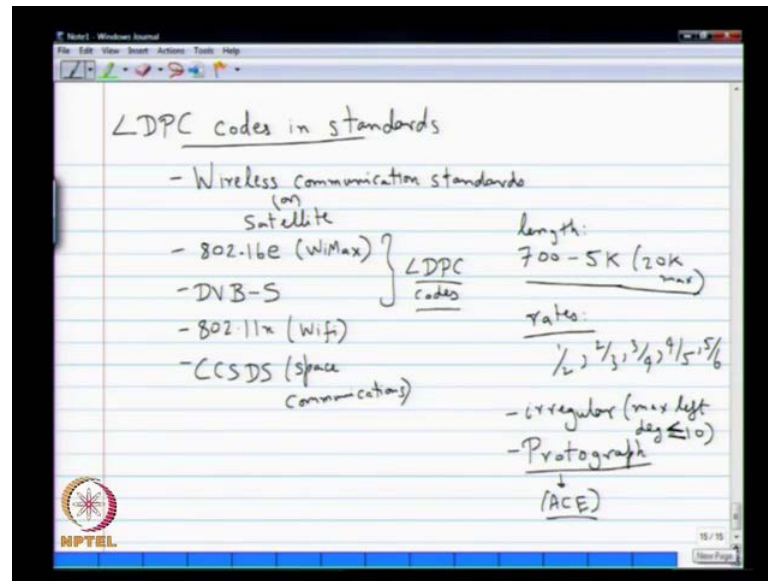 Note1 - Windows Journal
File Edit View Insert Actions Tools Help
LDPC codes in standards
- Wireless communication standards
(or)
Satellite
- 802.16e (WiMax)
- DVB-S
LDPC
codes
- 802.11n (Wifi)
- CCSDS (space
communications)
length:
700 - 5K (20K
max)
rates:
1/2, 2/3, 3/4, 4/5, 5/6
- irregular (max left
deg ≤ 10)
- Protograph
↓
(ACE)
NPTEL
15 / 15
New Page